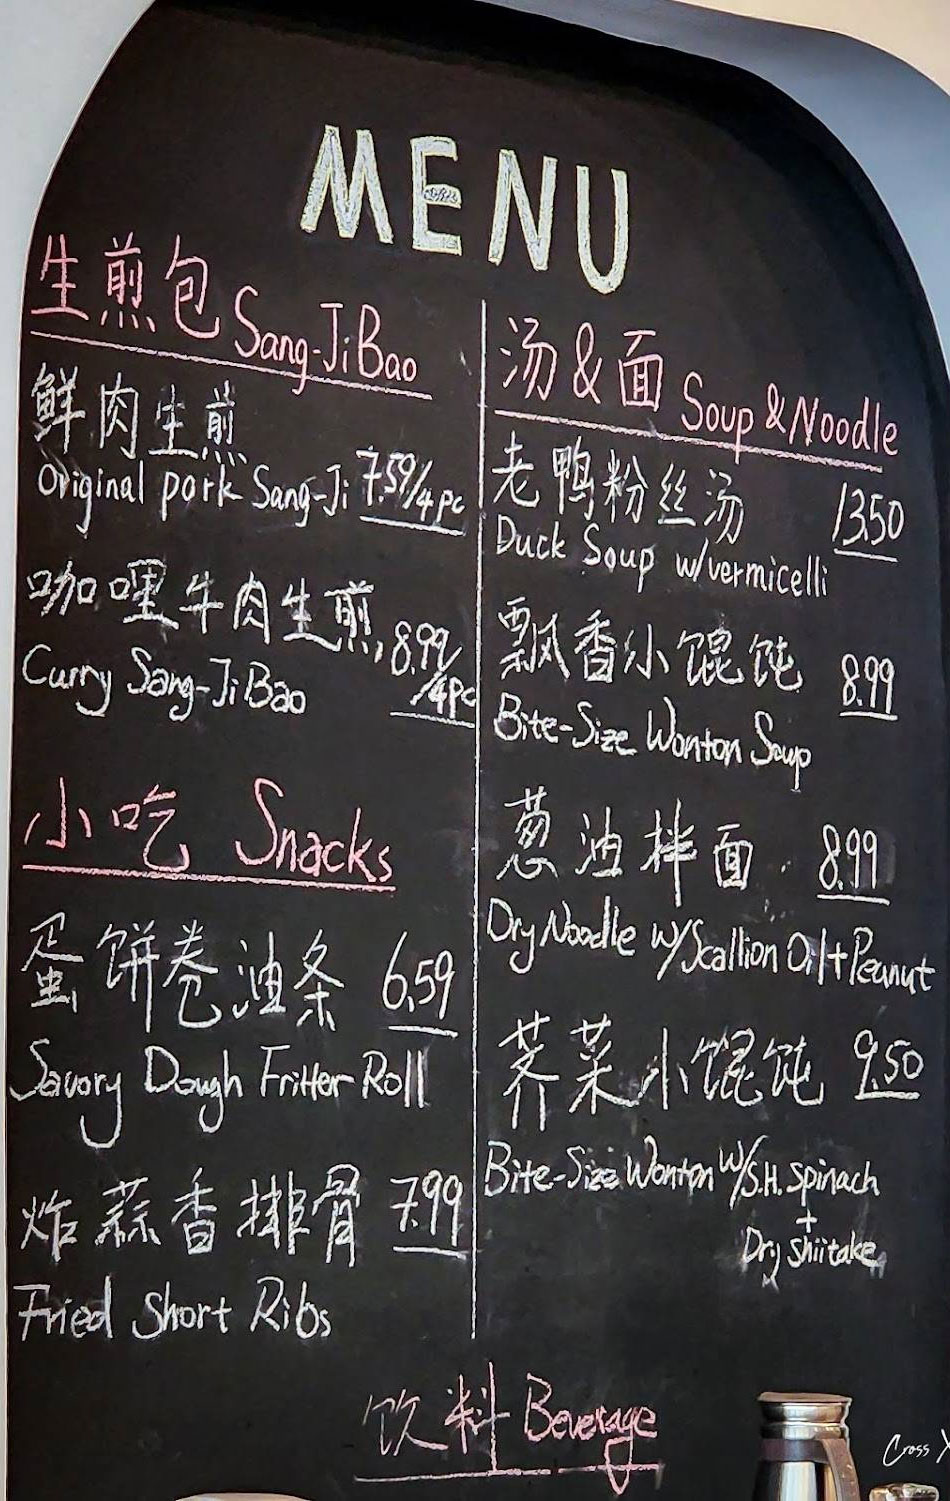 MENU
生煎包 Sang-Ji Bao
鲜肉生煎
Original pork Sang-Ji 7.59/4pc
咖喱牛肉生煎, 8.99/4pc
Curry Sang-Ji Bao
小吃 Snacks
蛋饼卷油条 6.59
Savory Dough Fritter Roll
炸蒜香排骨 7.99
Fried Short Ribs
汤&面 Soup & Noodle
老鸭粉丝汤 13.50
Duck Soup w/vermicelli
飘香小馄饨 8.99
Bite-Size Wonton Soup
葱油拌面 8.99
Dry Noodle w/Scallion Oil+Peanut
荠菜小馄饨 9.50
Bite-Size Wonton w/S.H. Spinach
+
Dry Shiitake
饮料 Beverage
Cross